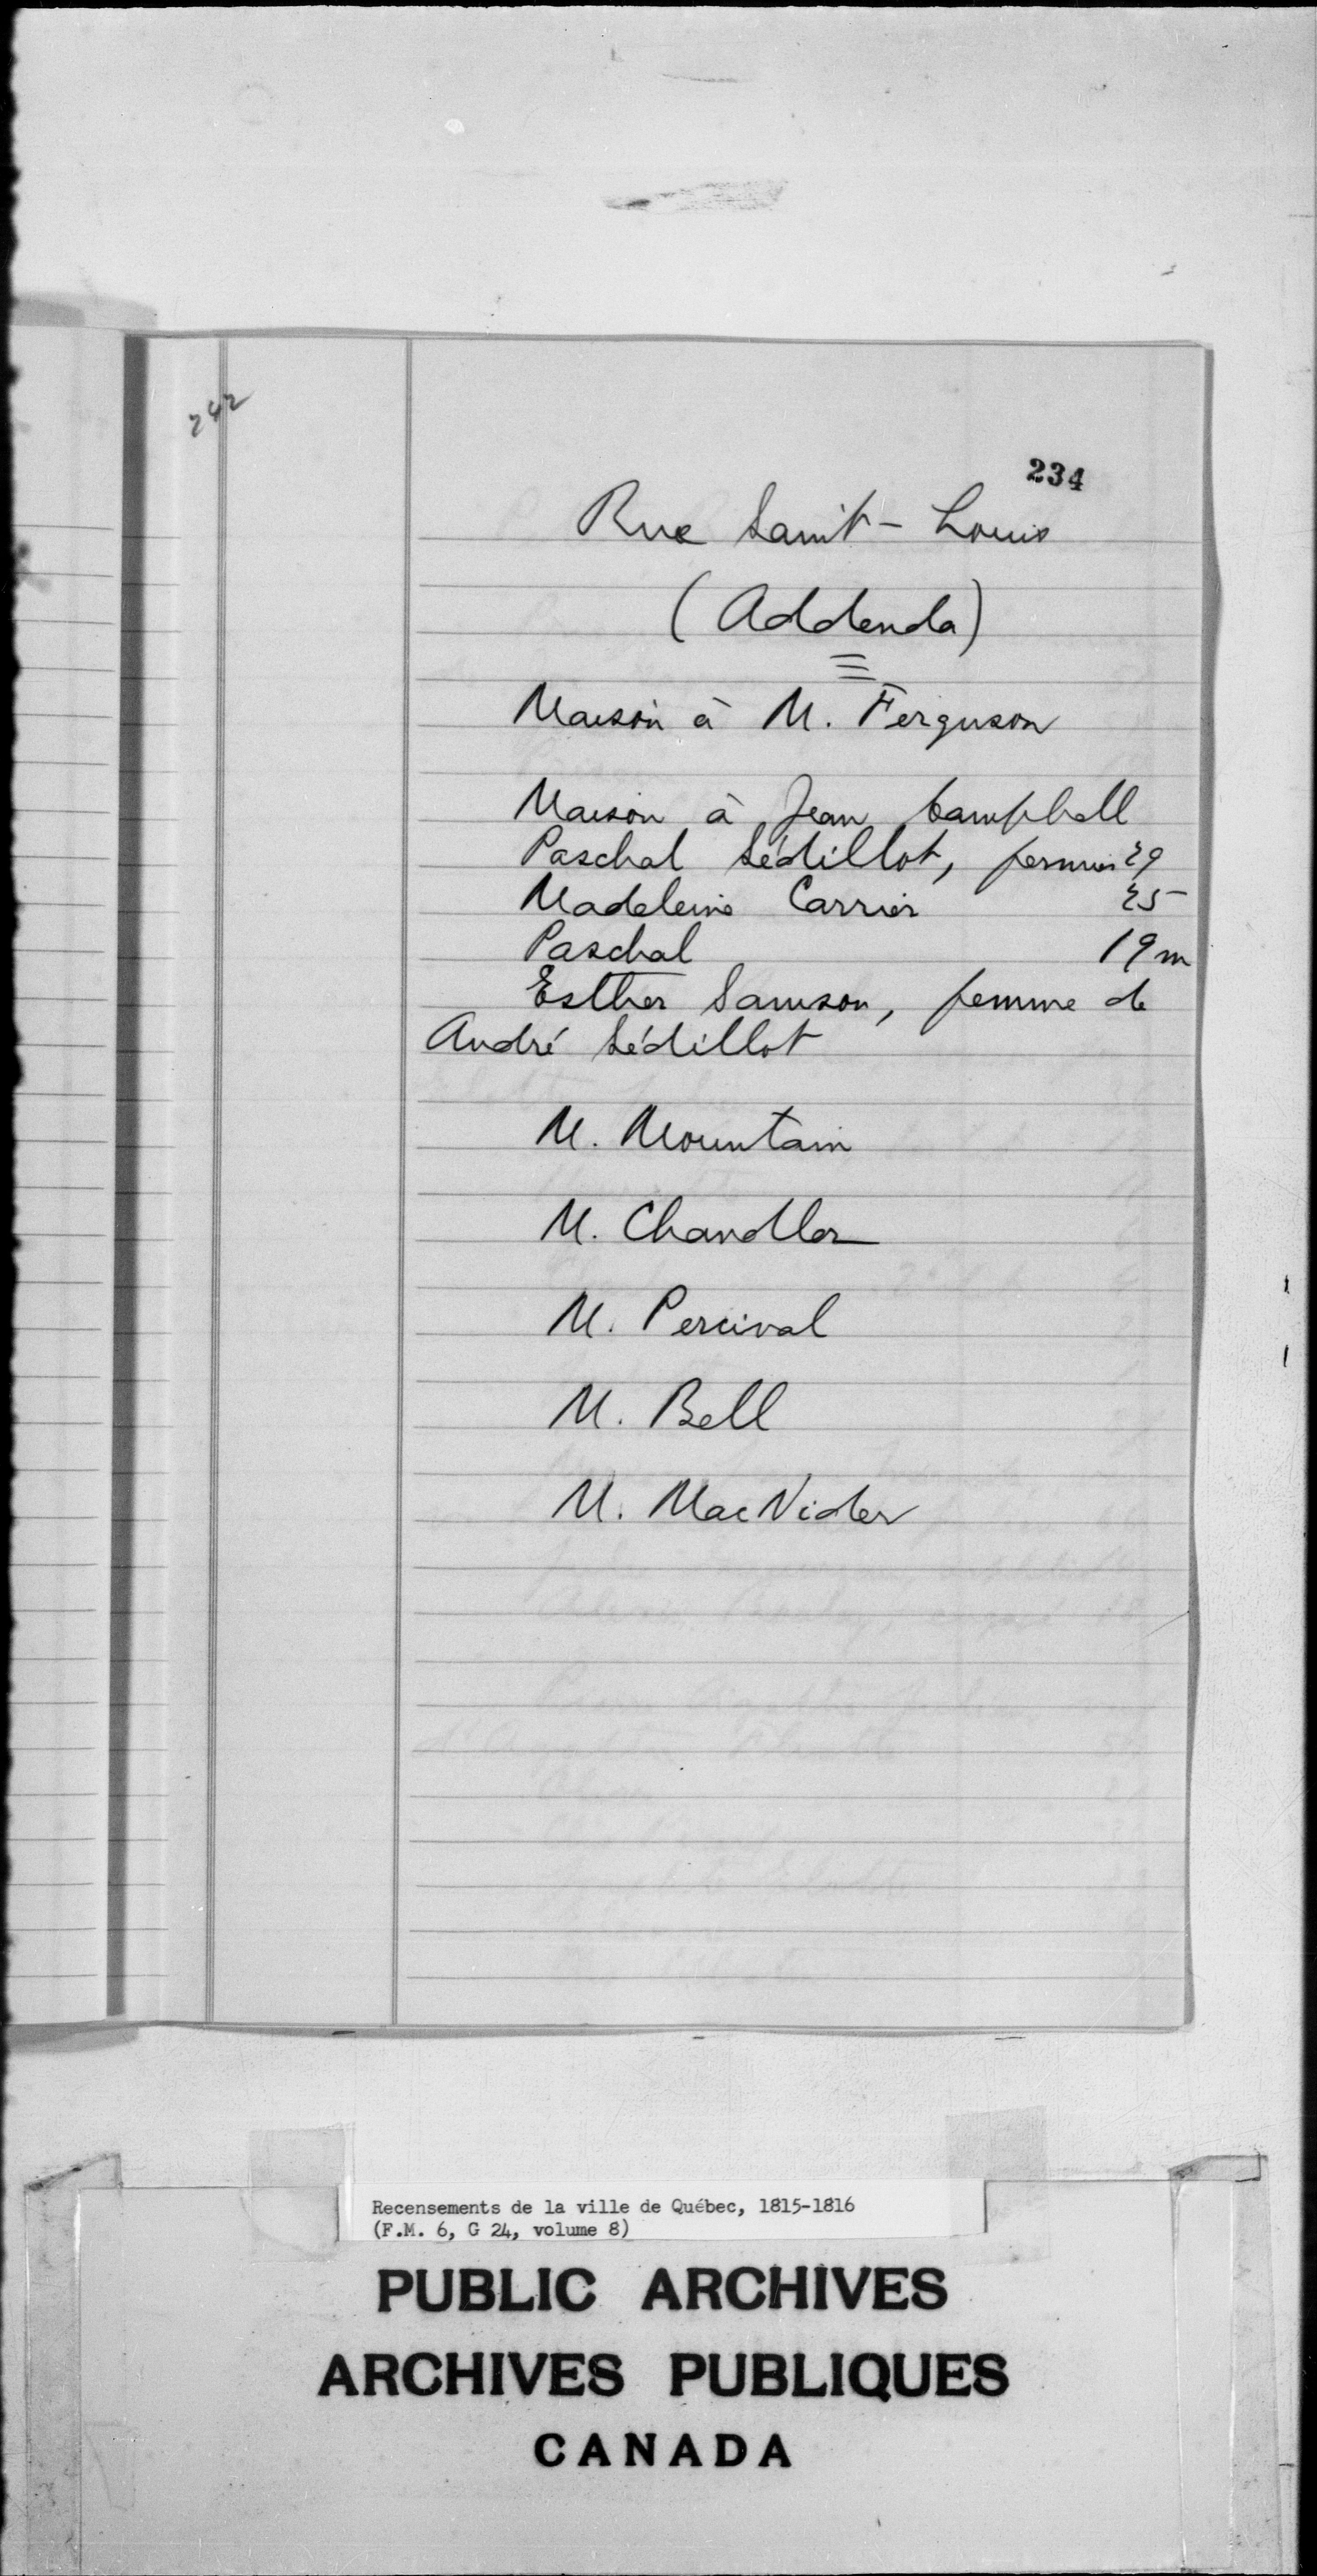 242
234
Rue Saint-Louis
(Addenda)
Maison à M. Ferguson
Maison à Jean Campbell
Paschal Sédillot, fermier 29
Madeleine Carrier 25
Paschal 19 m
Esther Samson, femme de
André Sédillot
M. Mountain
M. Chandler
M. Percival
M. Bell
M. MacNider
Recensements de la ville de Québec, 1815-1816
(F.M. 6, G 24, volume 8)
PUBLIC ARCHIVES
ARCHIVES PUBLIQUES
CANADA